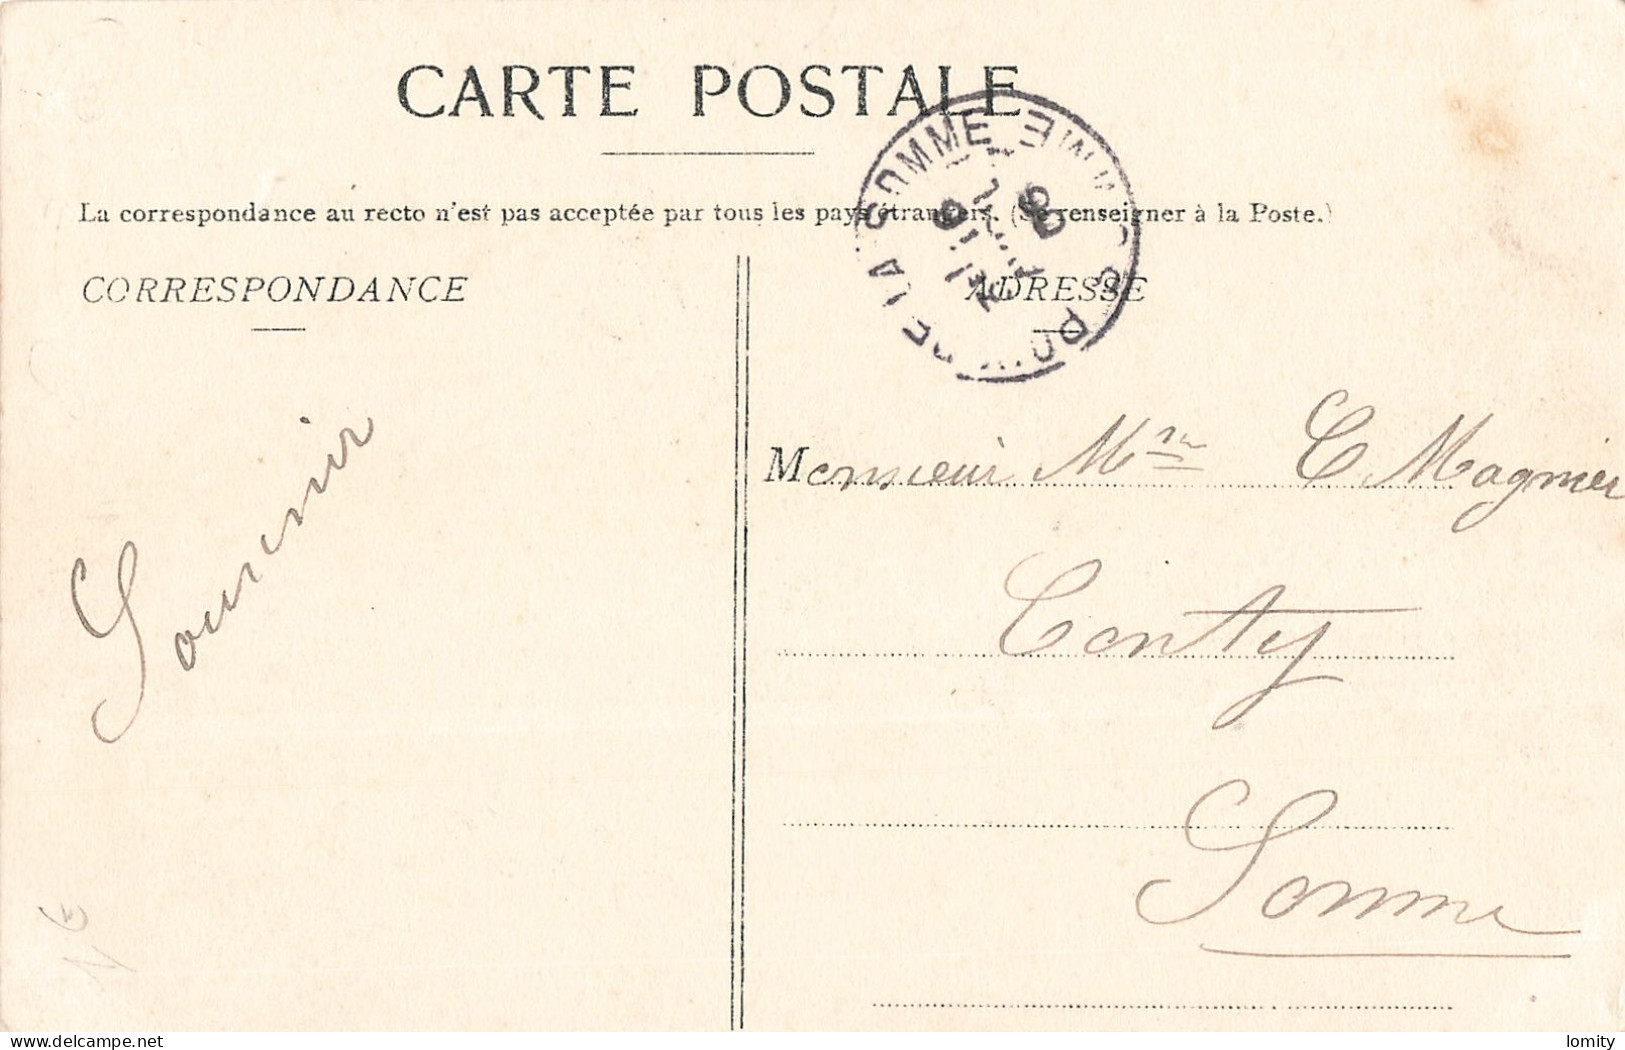 CARTE POSTALE
La correspondance au recto n'est pas acceptée par tous les pays étrangers. (Se renseigner à la Poste.)
CORRESPONDANCE
ADRESSE
SOMME
Souvenir
Monsieur Mme C Magnier
Conty
Somme
delcampe.net
lomity